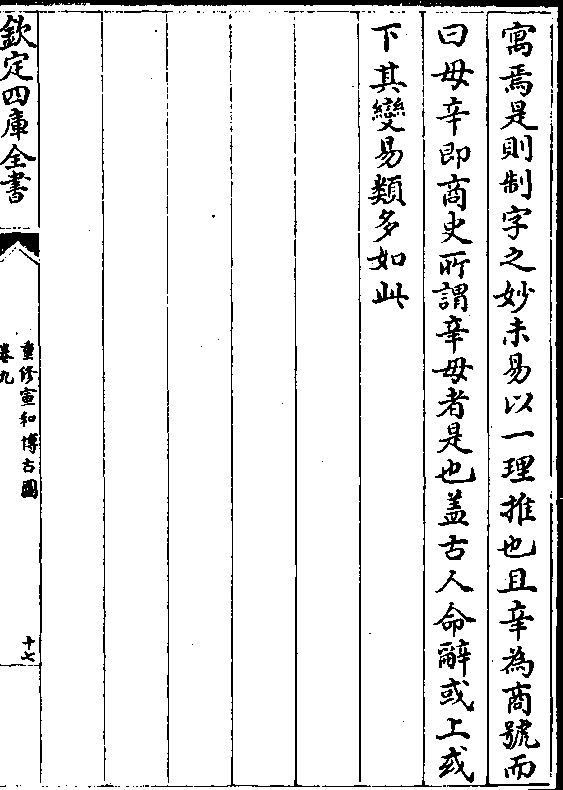 寓焉是則制字之妙未易以一理推也且辛為商號而
曰毋辛即商史所謂辛毋者是也盖古人命辭或上或
下其變易類多如此
欽定四庫全書
重修宣和博古圖
卷九
十七